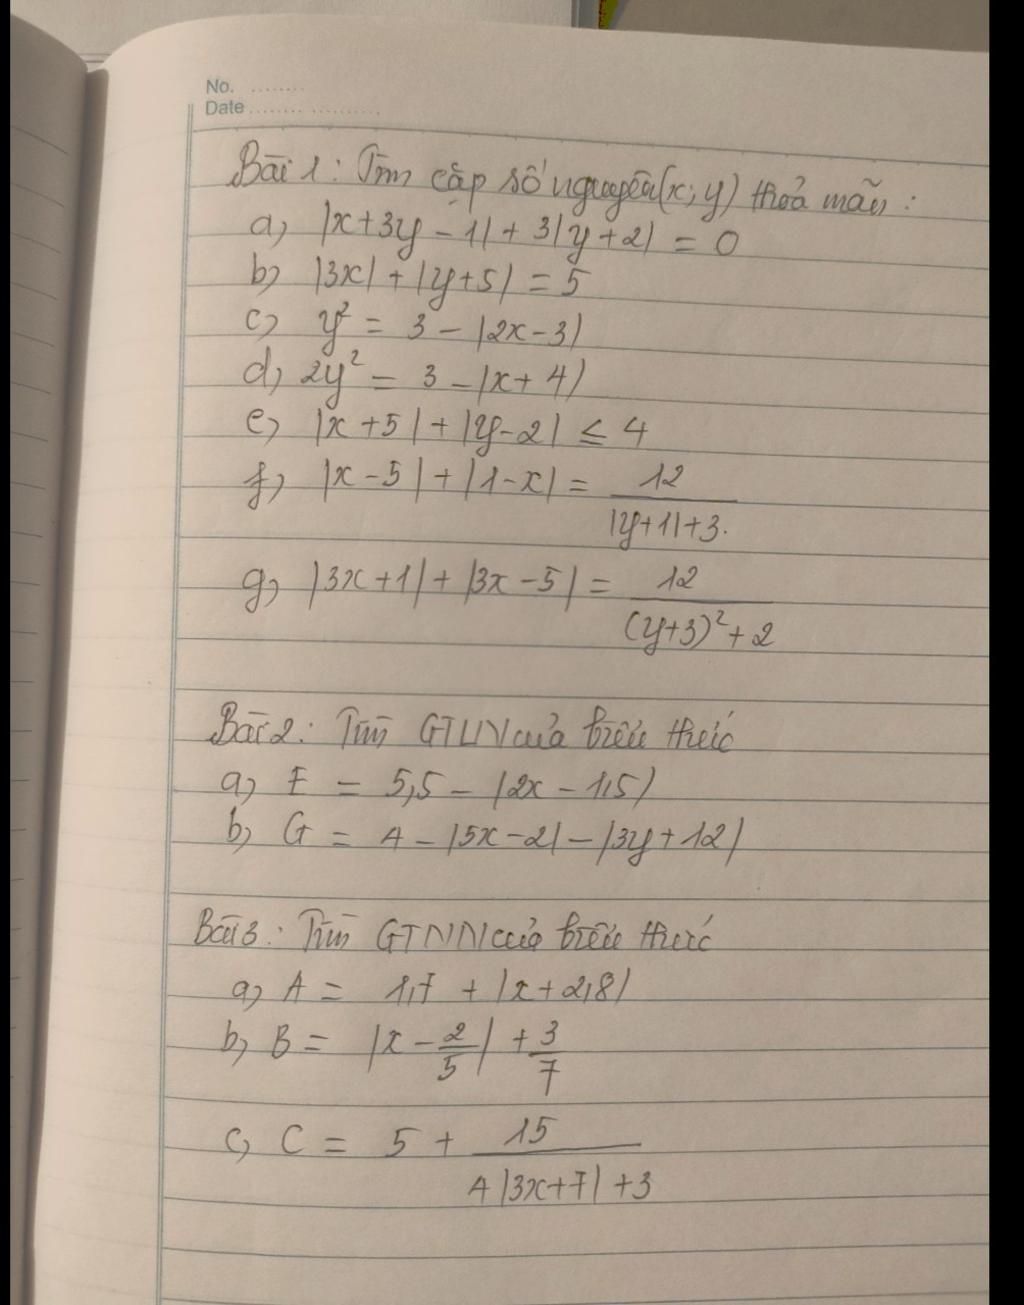 No. ........
Date ....... ..........
Bài 1: Tìm cặp số nguyên (x; y) thoả mãn:
a, |x+3y-1|+3|y+2| = 0
b, |3x|+|y+5| = 5
c, y² = 3 - |2x-3|
d, 2y² = 3 - |x+4|
e, |x+5|+|y-2| ≤ 4
f, |x-5|+|1-x| = 12/(|y+1|+3)
g, |3x+1|+|3x-5| = 12/((y+3)²+2)
Bài 2: Tìm GTLN của biểu thức
a, F = 5,5 - |2x - 1,5|
b, G = 4 - |5x-2| - |3y+12|
Bài 3: Tìm GTNN của biểu thức
a, A = 1,7 + |x+2,8|
b, B = |x - 2/5| + 3/7
c, C = 5 + 15/(4|3x+7|+3)